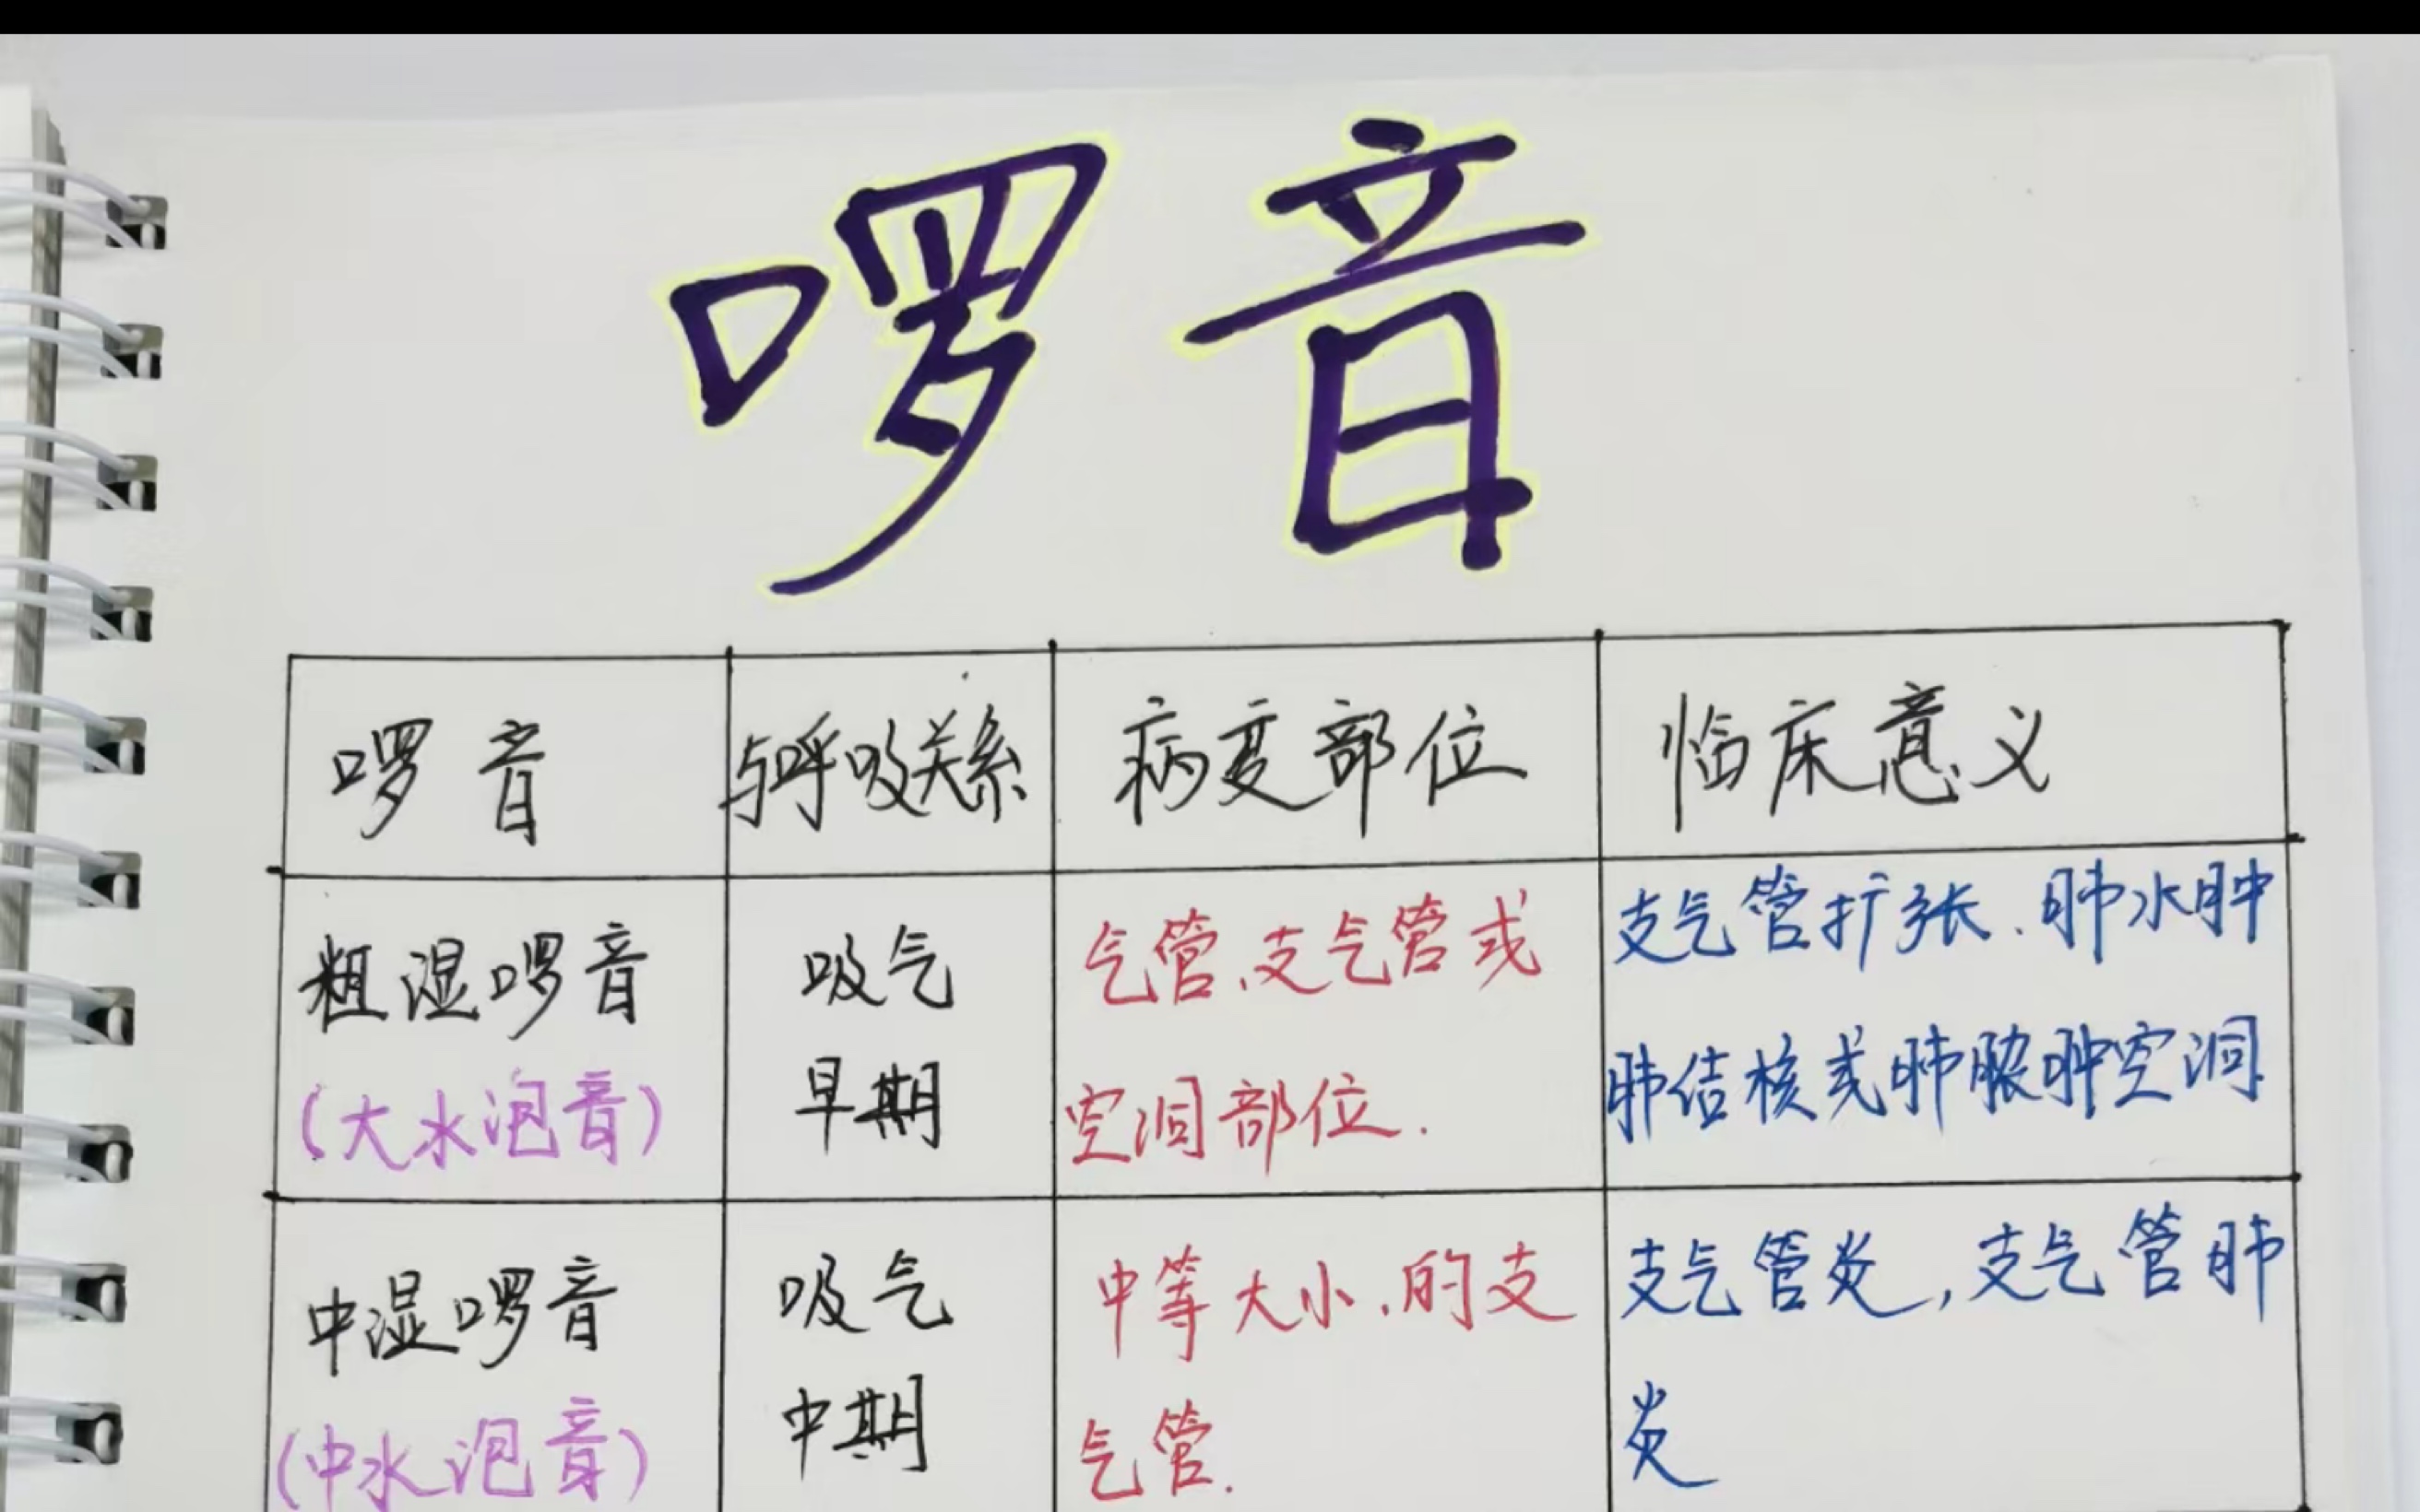 啰音
啰音 与呼吸关系 病变部位 临床意义
粗湿啰音
(大水泡音)
吸气
早期
气管、支气管或
空洞部位.
支气管扩张、肺水肿
肺结核或肺脓肿空洞
中湿啰音
(中水泡音)
吸气
中期
中等大小.的支
气管.
支气管炎,支气管肺
炎